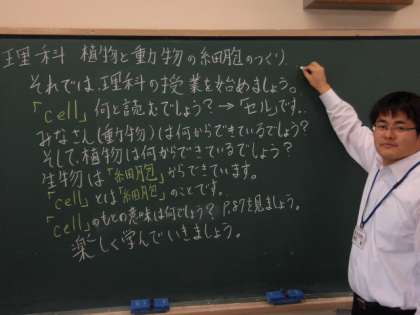 理科 植物と動物の細胞のつくり
それでは、理科の授業を始めましょう。
「cell」何と読むでしょう?→「セル」です。
みなさん(動物)は何からできているでしょう?
そして、植物は何からできているでしょう?
生物は「細胞」からできています。
「cell」とは「細胞」のことです。
「cell」のもとの意味は何でしょう? P.87を見ましょう。
楽しく学んでいきましょう。